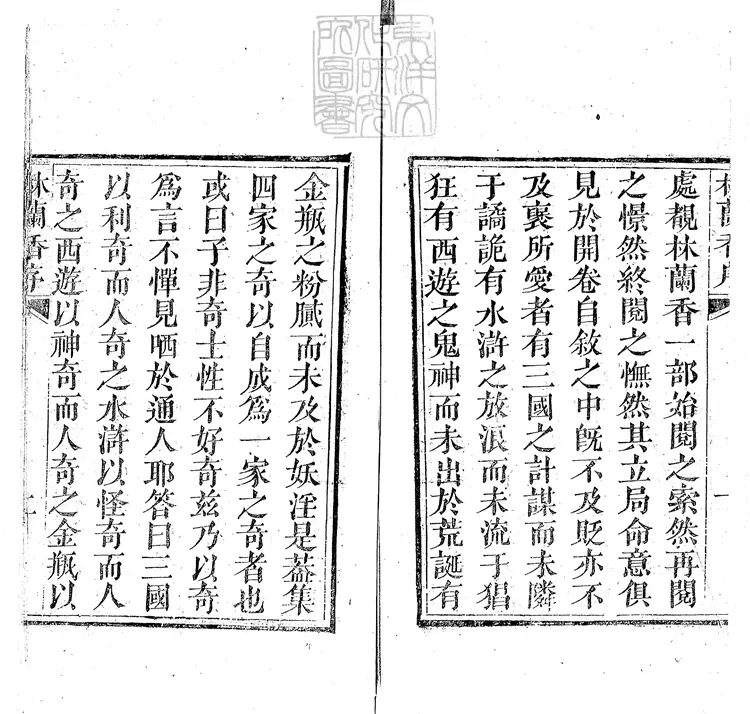 東洋文
化研究
所圖書
林蘭香序
處覩林蘭香一部始閱之索然再閱
之憬然終閱之憮然其立局命意俱
見於開卷自敘之中旣不及貶亦不
及襃所愛者有三國之計謀而未隣
于譎詭有水滸之放浪而未流于猖
狂有西遊之鬼神而未出於荒誕有
金瓶之粉膩而未及於妖淫是葢集
四家之奇以自成爲一家之奇者也
或曰子非奇士性不好奇兹乃以奇
爲言不憚見哂於通人耶答曰三國
以利奇而人奇之水滸以怪奇而人
奇之西遊以神奇而人奇之金瓶以
林蘭香序